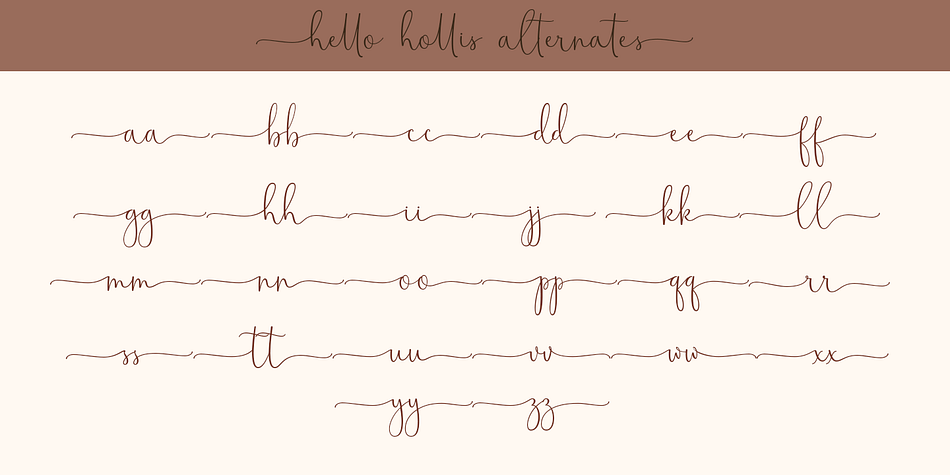 hello hollis alternates
aa bb cc dd ee ff
gg hh ii jj kk ll
mm nn oo pp qq rr
ss tt uu vv ww xx
yy zz